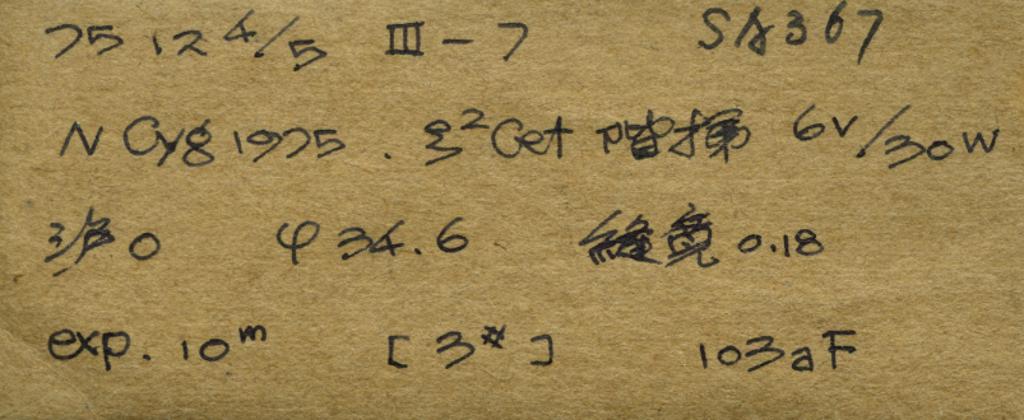 75 12 4/5 III-7 SA367
N Cyg 1975. ξ²Cet 階梯 6V/30W
沪0 φ34.6 縫宽0.18
exp. 10ᵐ [3#] 103aF